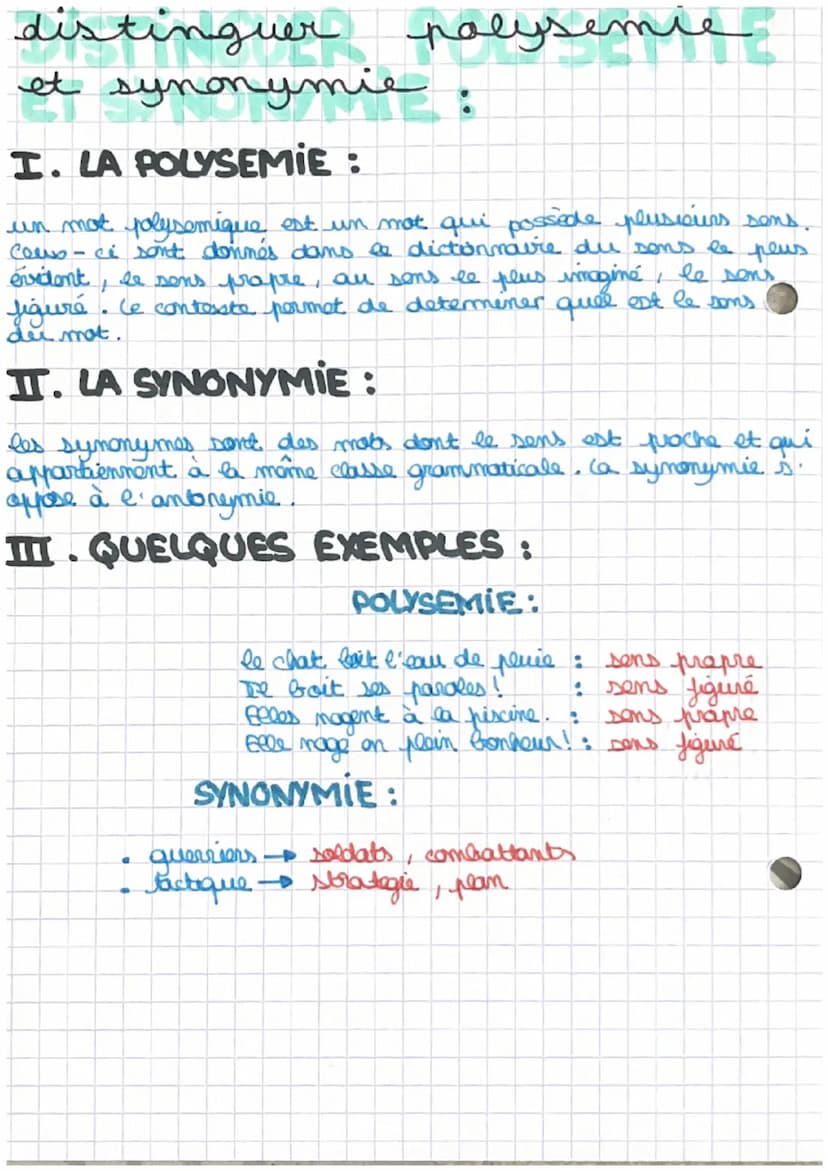 distinguer polysemie
et synonymie :
DISTINGUER POLYSEMIE
ET SYNONYMIE :
I. LA POLYSEMIE :
un mot polysemique est un mot qui possède plusieurs sens.
Ceux-ci sont donnés dans le dictonnaire du sens le plus
évident, le sens propre, au sens le plus imaginé, le sens
figuré. Le contexte permet de determiner quel est le sens
du mot.
II. LA SYNONYMIE :
les synonymes sont des mots dont le sens est proche et qui
appartiennent à la même classe grammaticale. La synonymie s'
oppose à l'antonymie.
III. QUELQUES EXEMPLES :
POLYSEMIE :
le chat boit l'eau de pluie : sens propre
Il boit ses paroles ! : sens figuré
Elles nagent à la piscine. : sens propre
Elle nage en plein bonheur ! : sens figuré
SYNONYMIE :
• guerriers → soldats, combattants
• tactique → strategie, plan